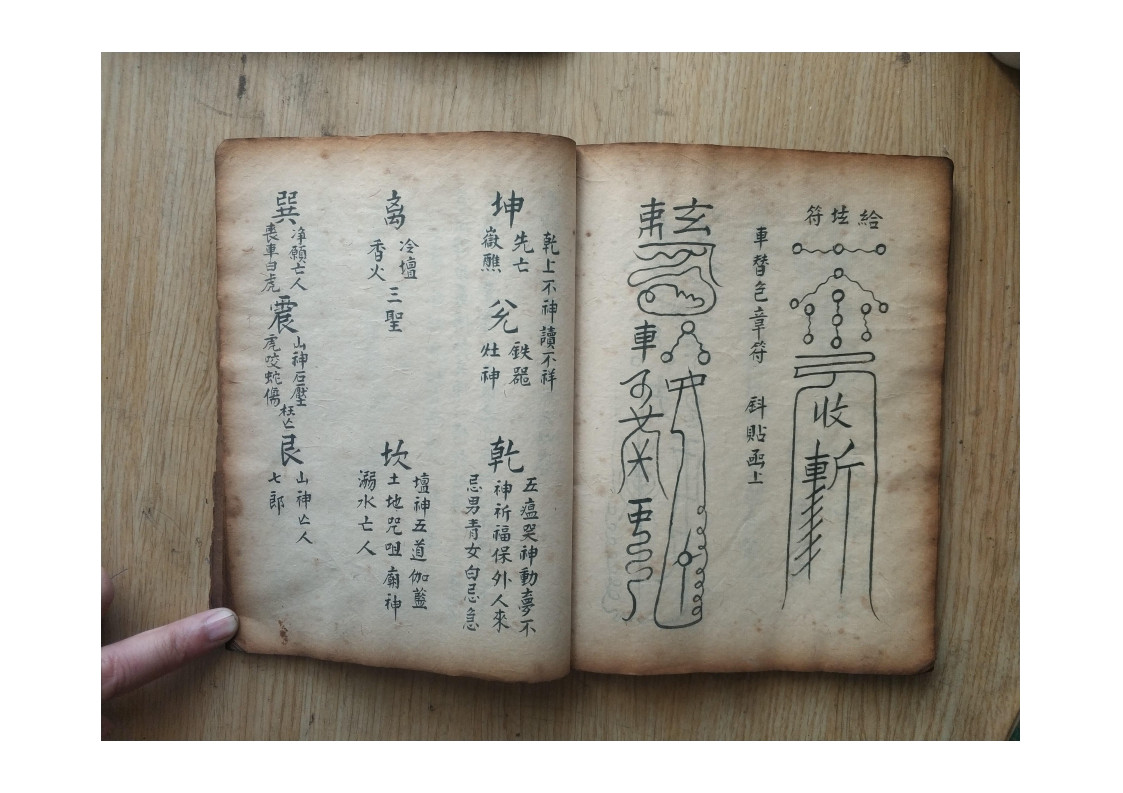 給坛符
收
斬
車替色章符 斜貼函上
玄
車
乾上不神讀不祥
坤
先亡
嶽醮
兊
鉄器
灶神
乾
五瘟哭神動夢不
神祈福保外人來
忌男青女白忌急
离
冷壇
香火
三聖
坎
壇神五道伽藍
土地咒咀廟神
溺水亡人
巽
净願亡人
喪車白虎
震
山神石壓
虎咬蛇傷
枉亡
艮
山神亡人
七郎